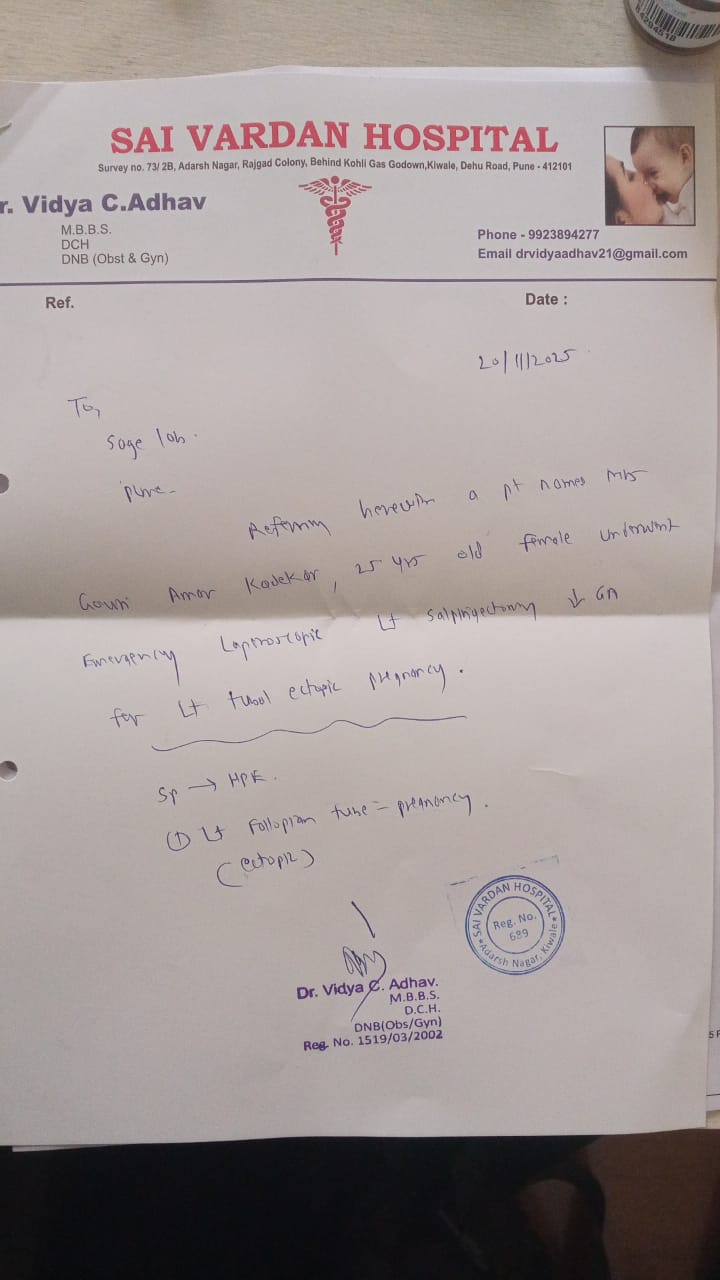 SAI VARDAN HOSPITAL
Survey no. 73/ 2B, Adarsh Nagar, Rajgad Colony, Behind Kohli Gas Godown,Kiwale, Dehu Road, Pune - 412101
r. Vidya C.Adhav
M.B.B.S.
DCH
DNB (Obst & Gyn)
Phone - 9923894277
Email drvidyaadhav21@gmail.com
Ref.
Date :
20/11/2025
To,
Sage lab.
pune-
Referring herewith a pt names Mrs
Gouri Amar Kodekar, 25 yrs old female underwent
Emergency Laproscopic Lt salpingectomy ↓ GA
for Lt tubal ectopic pregnancy.
Sp → HPE.
① Lt Fallopian tube = pregnancy.
(ectopic)
SAI VARDAN HOSPITAL
Reg. No.
689
Adarsh Nagar, Kiwale
Dr. Vidya C. Adhav.
M.B.B.S.
D.C.H.
DNB(Obs/Gyn)
Reg. No. 1519/03/2002